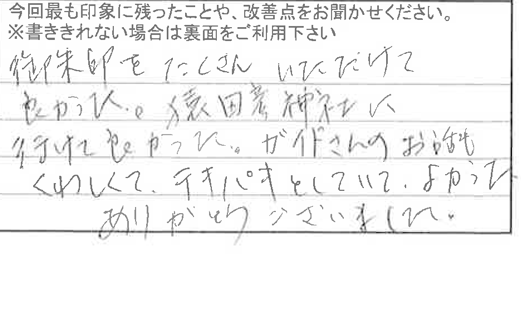 今回最も印象に残ったことや、改善点をお聞かせください。
※書ききれない場合は裏面をご利用下さい
御朱印をたくさんいただけて
良かった。猿田彦神社に
行けて良かった。ガイドさんのお話も
くわしくて、テキパキとしていて、よかった
ありがとうございました。